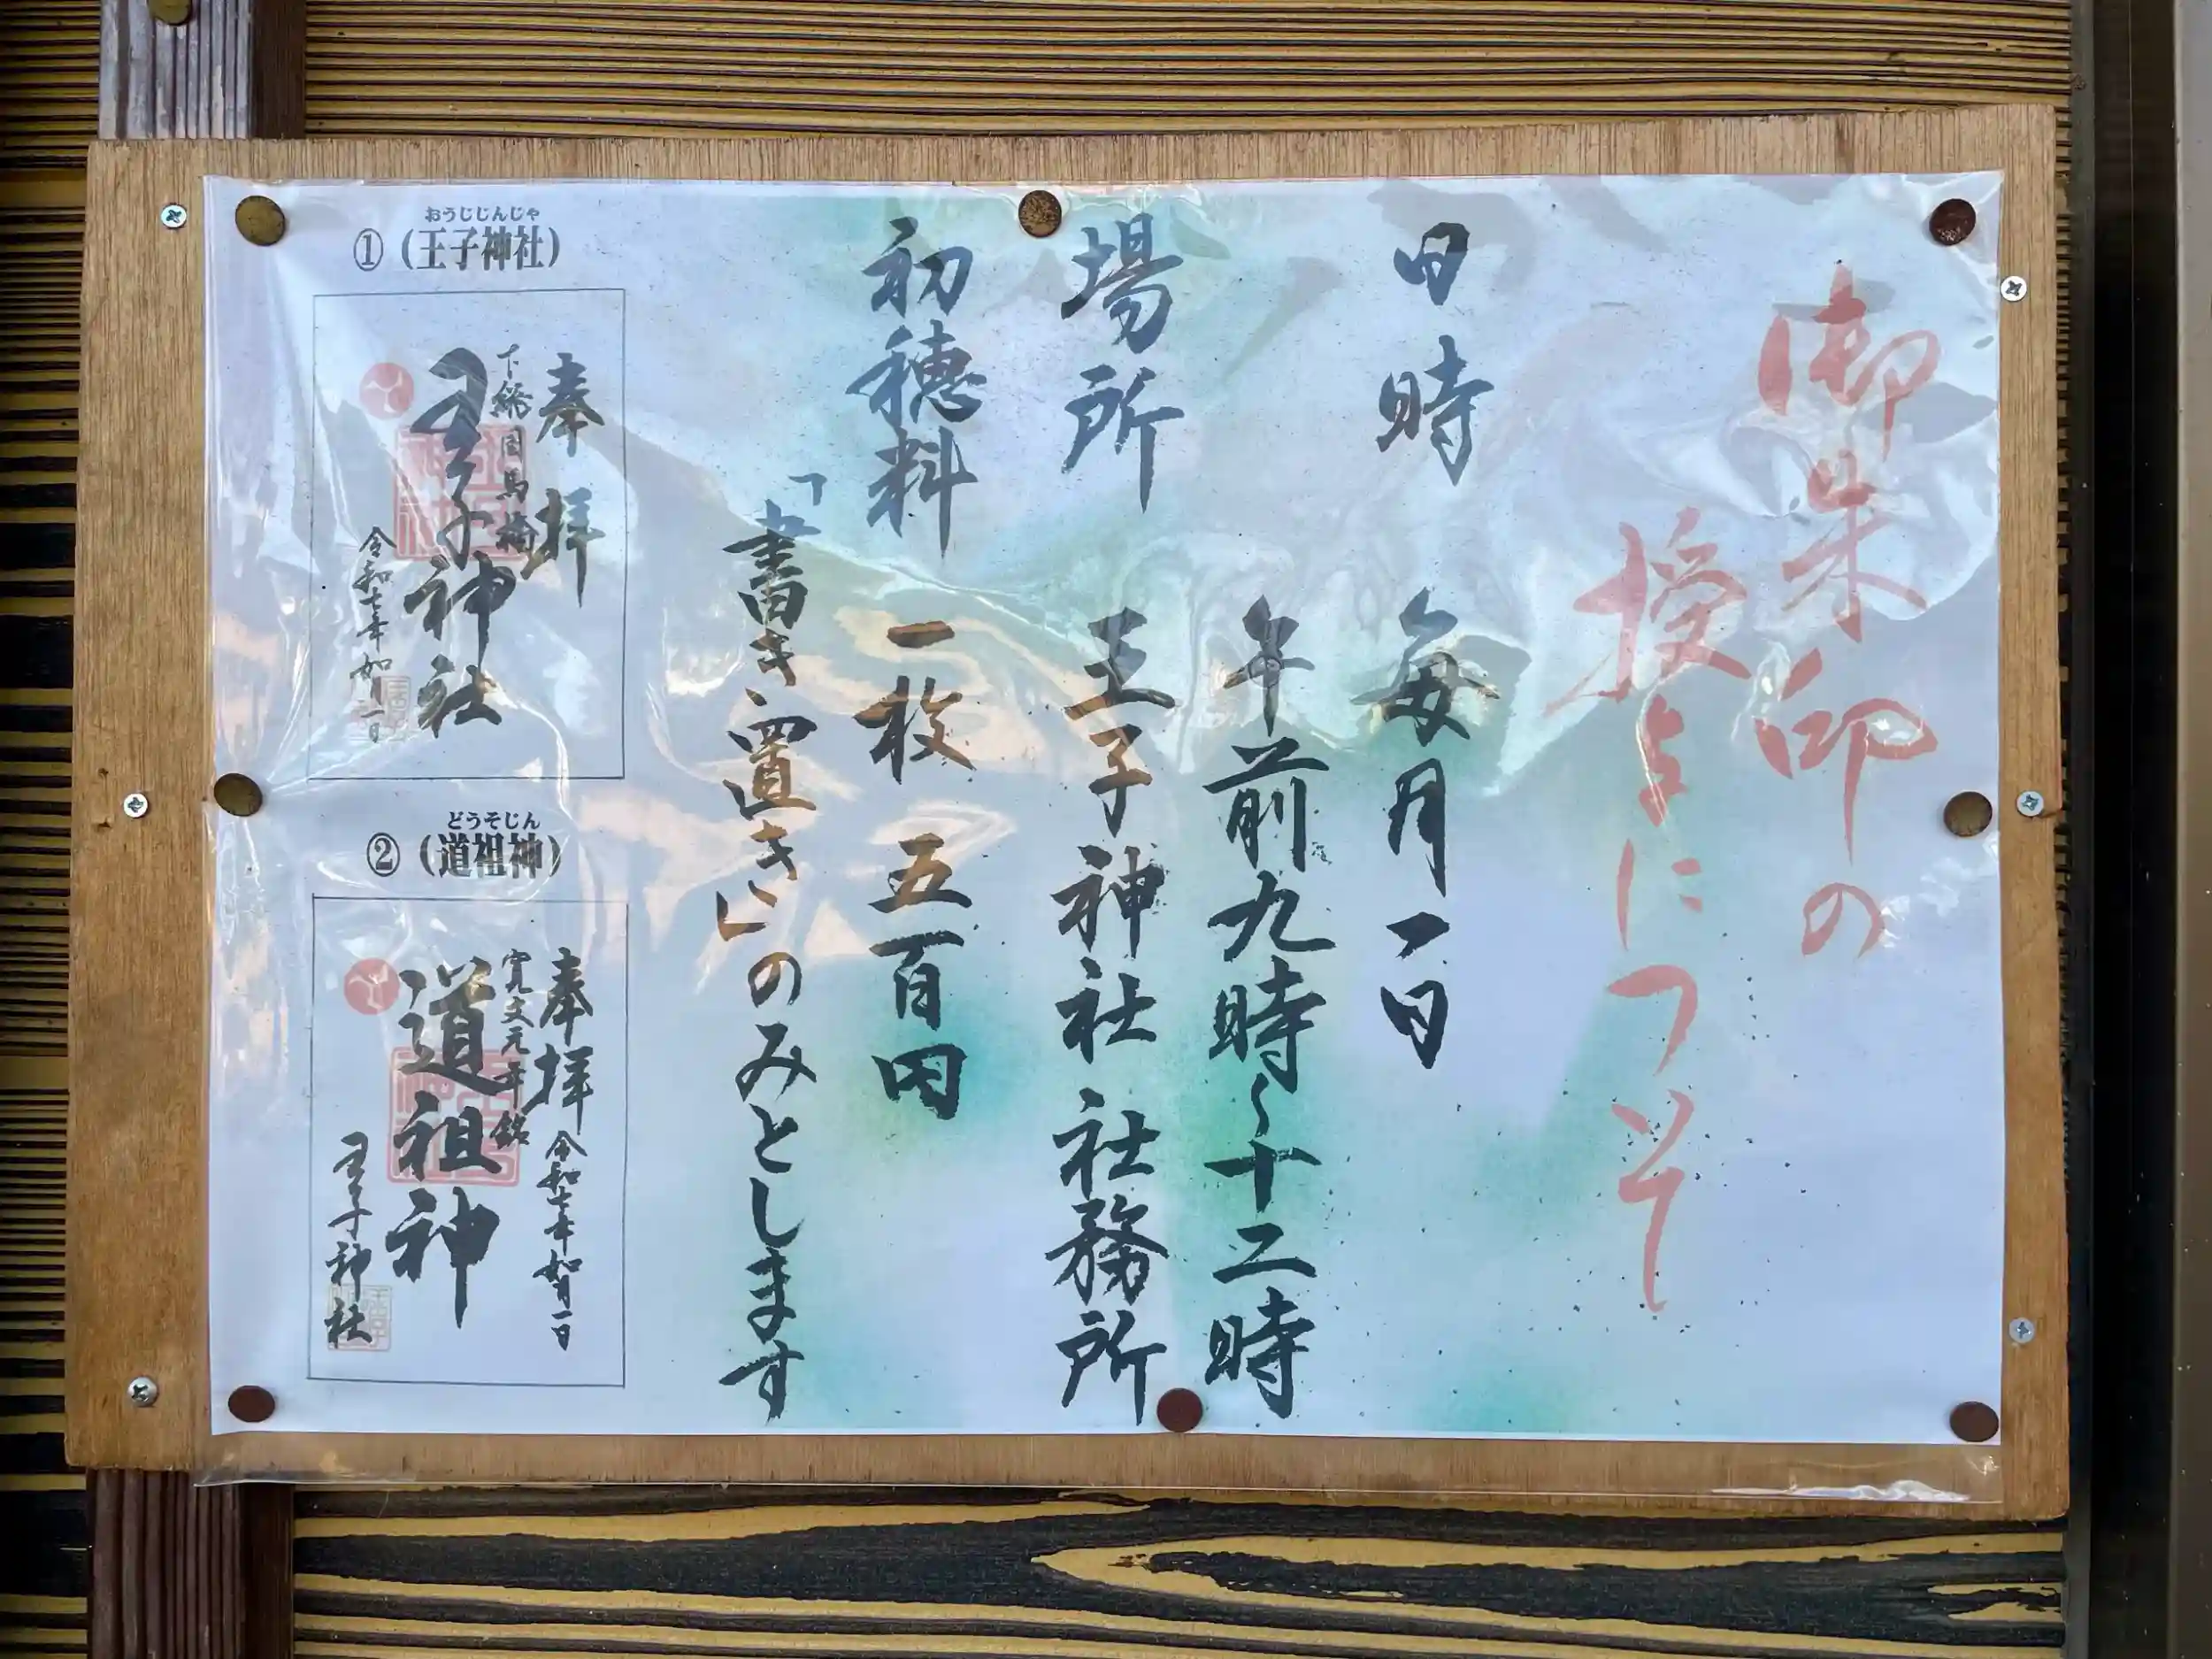 御朱印の
授与について
日時 毎月一日
午前九時〜十二時
場所 王子神社 社務所
初穂料 一枚 五百円
「書き置き」のみとします
おうじじんじゃ
①(王子神社)
奉拝
下総国馬橋
王子神社
令和七年如月一日
どうそじん
②(道祖神)
奉拝 令和七年如月一日
寛文元年銘
道祖神
王子神社